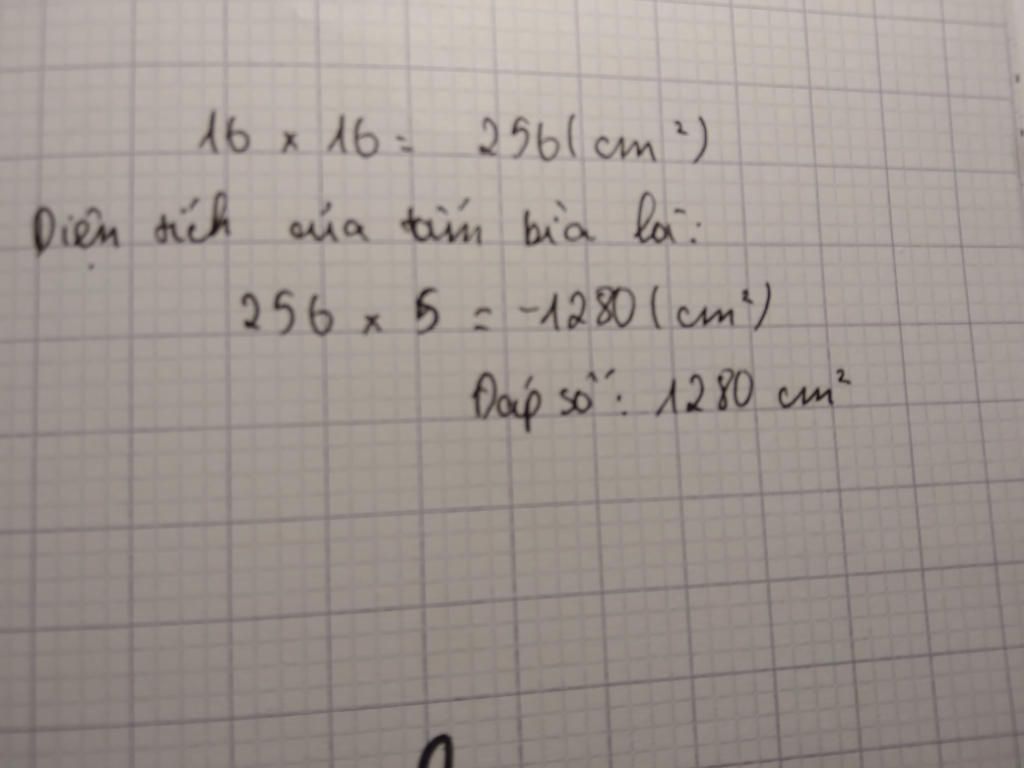 16 × 16 = 256 (cm²)
Diện tích của tấm bìa là:
256 × 5 = 1280 (cm²)
Đáp số: 1280 cm²